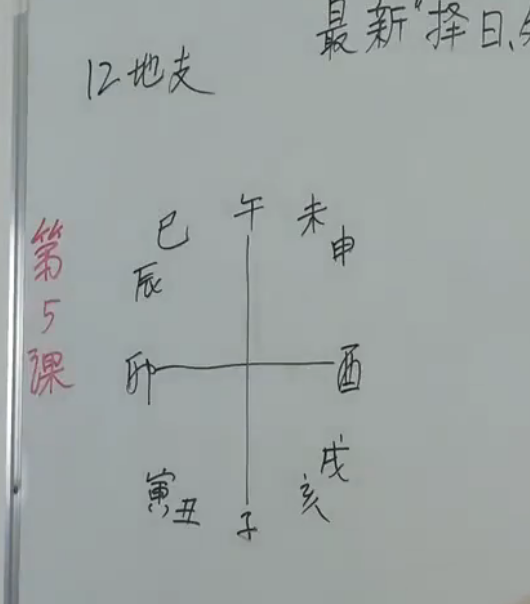 最新"择日、
12地支
第5课
午
未
巳
申
辰
卯
酉
戌
寅
丑
亥
子